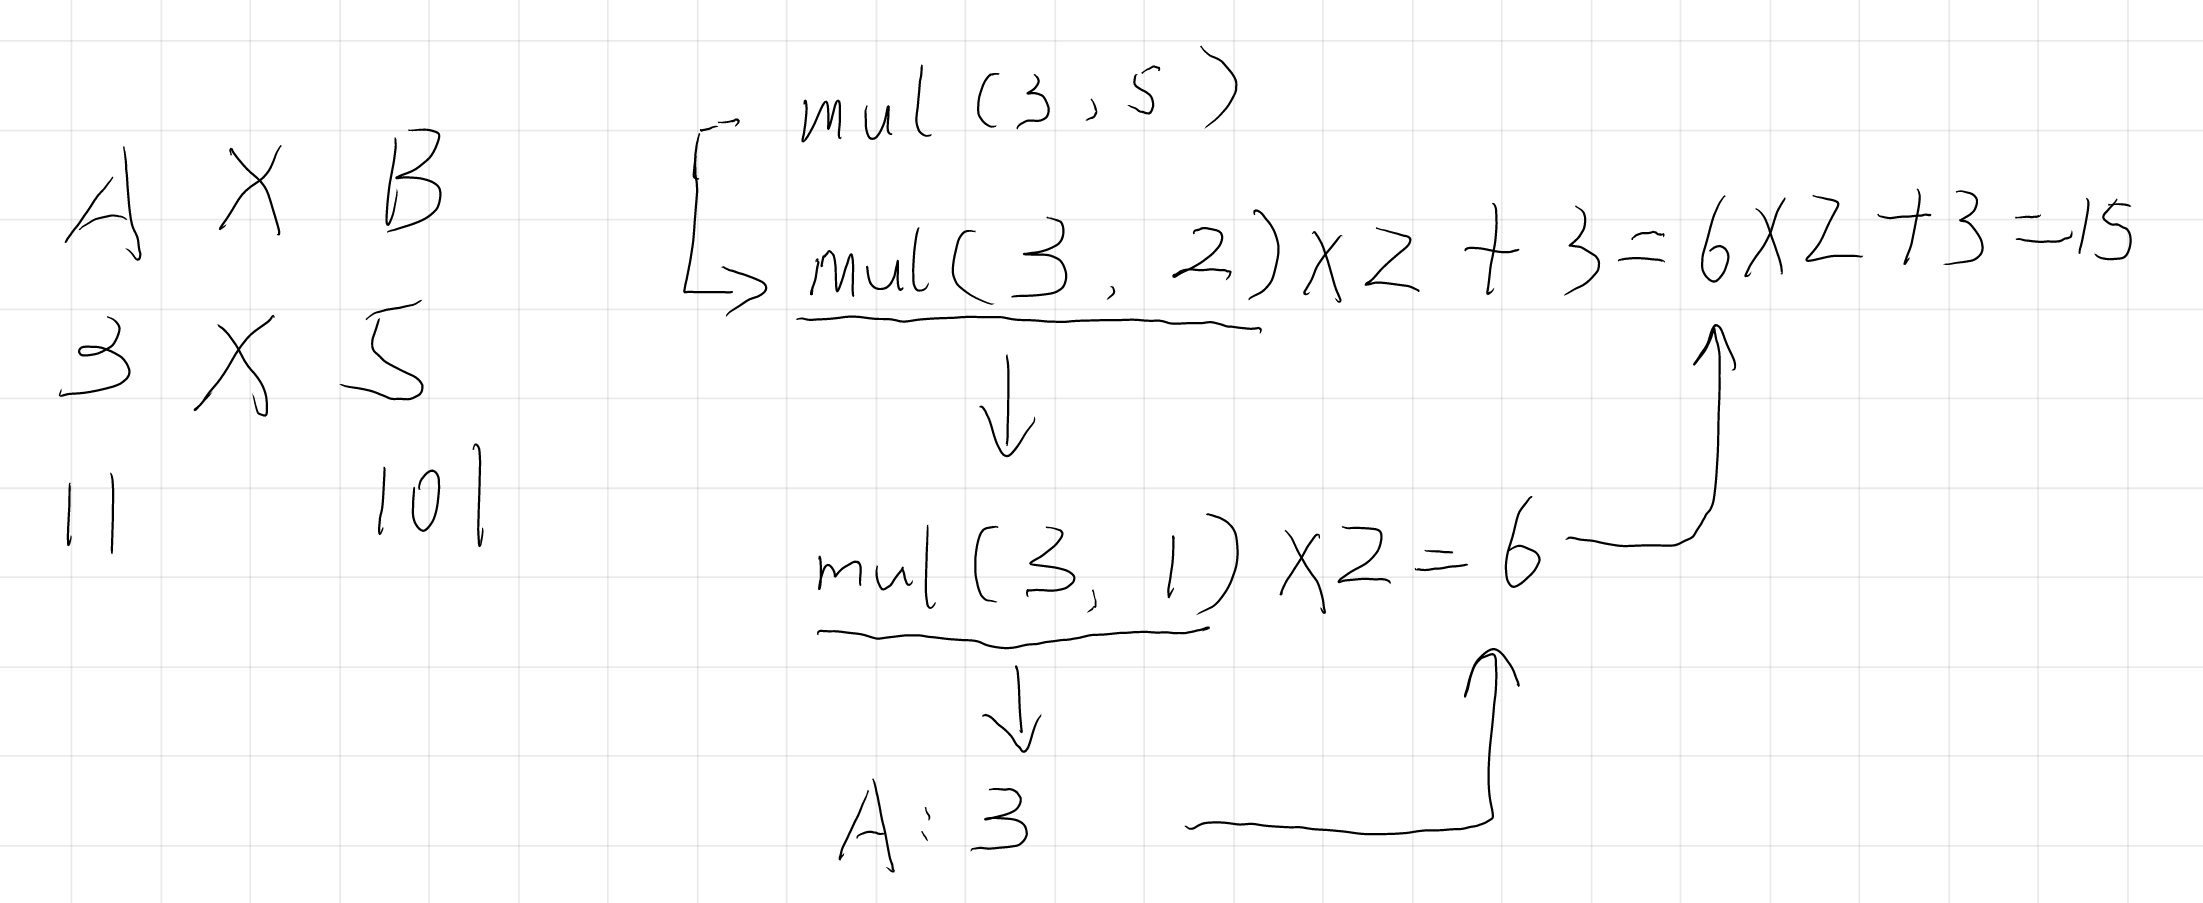 A X B
3 X 5
11 101
mul (3, 5)
mul(3, 2) X 2 + 3 = 6 X 2 + 3 = 15
mul (3, 1) X 2 = 6
A: 3